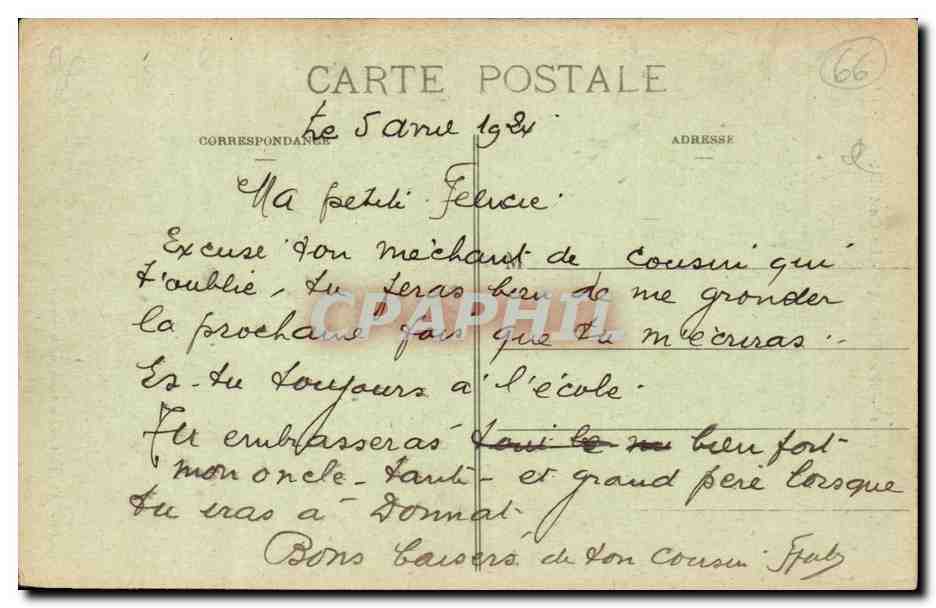 66
CARTE POSTALE
Le 5 avril 1924
CORRESPONDANCE
ADRESSE
Ma petite Felicie.
Excuse ton méchant de cousin qui
M
t'oublie, tu feras bien de me gronder
la prochaine fois que tu m'écriras.
CPAPHIL
Es-tu toujours à l'école.
Tu embrasseras bien fort
mon oncle - tante - et grand père lorsque
tu iras à Donnat
Bons baisers de ton cousin